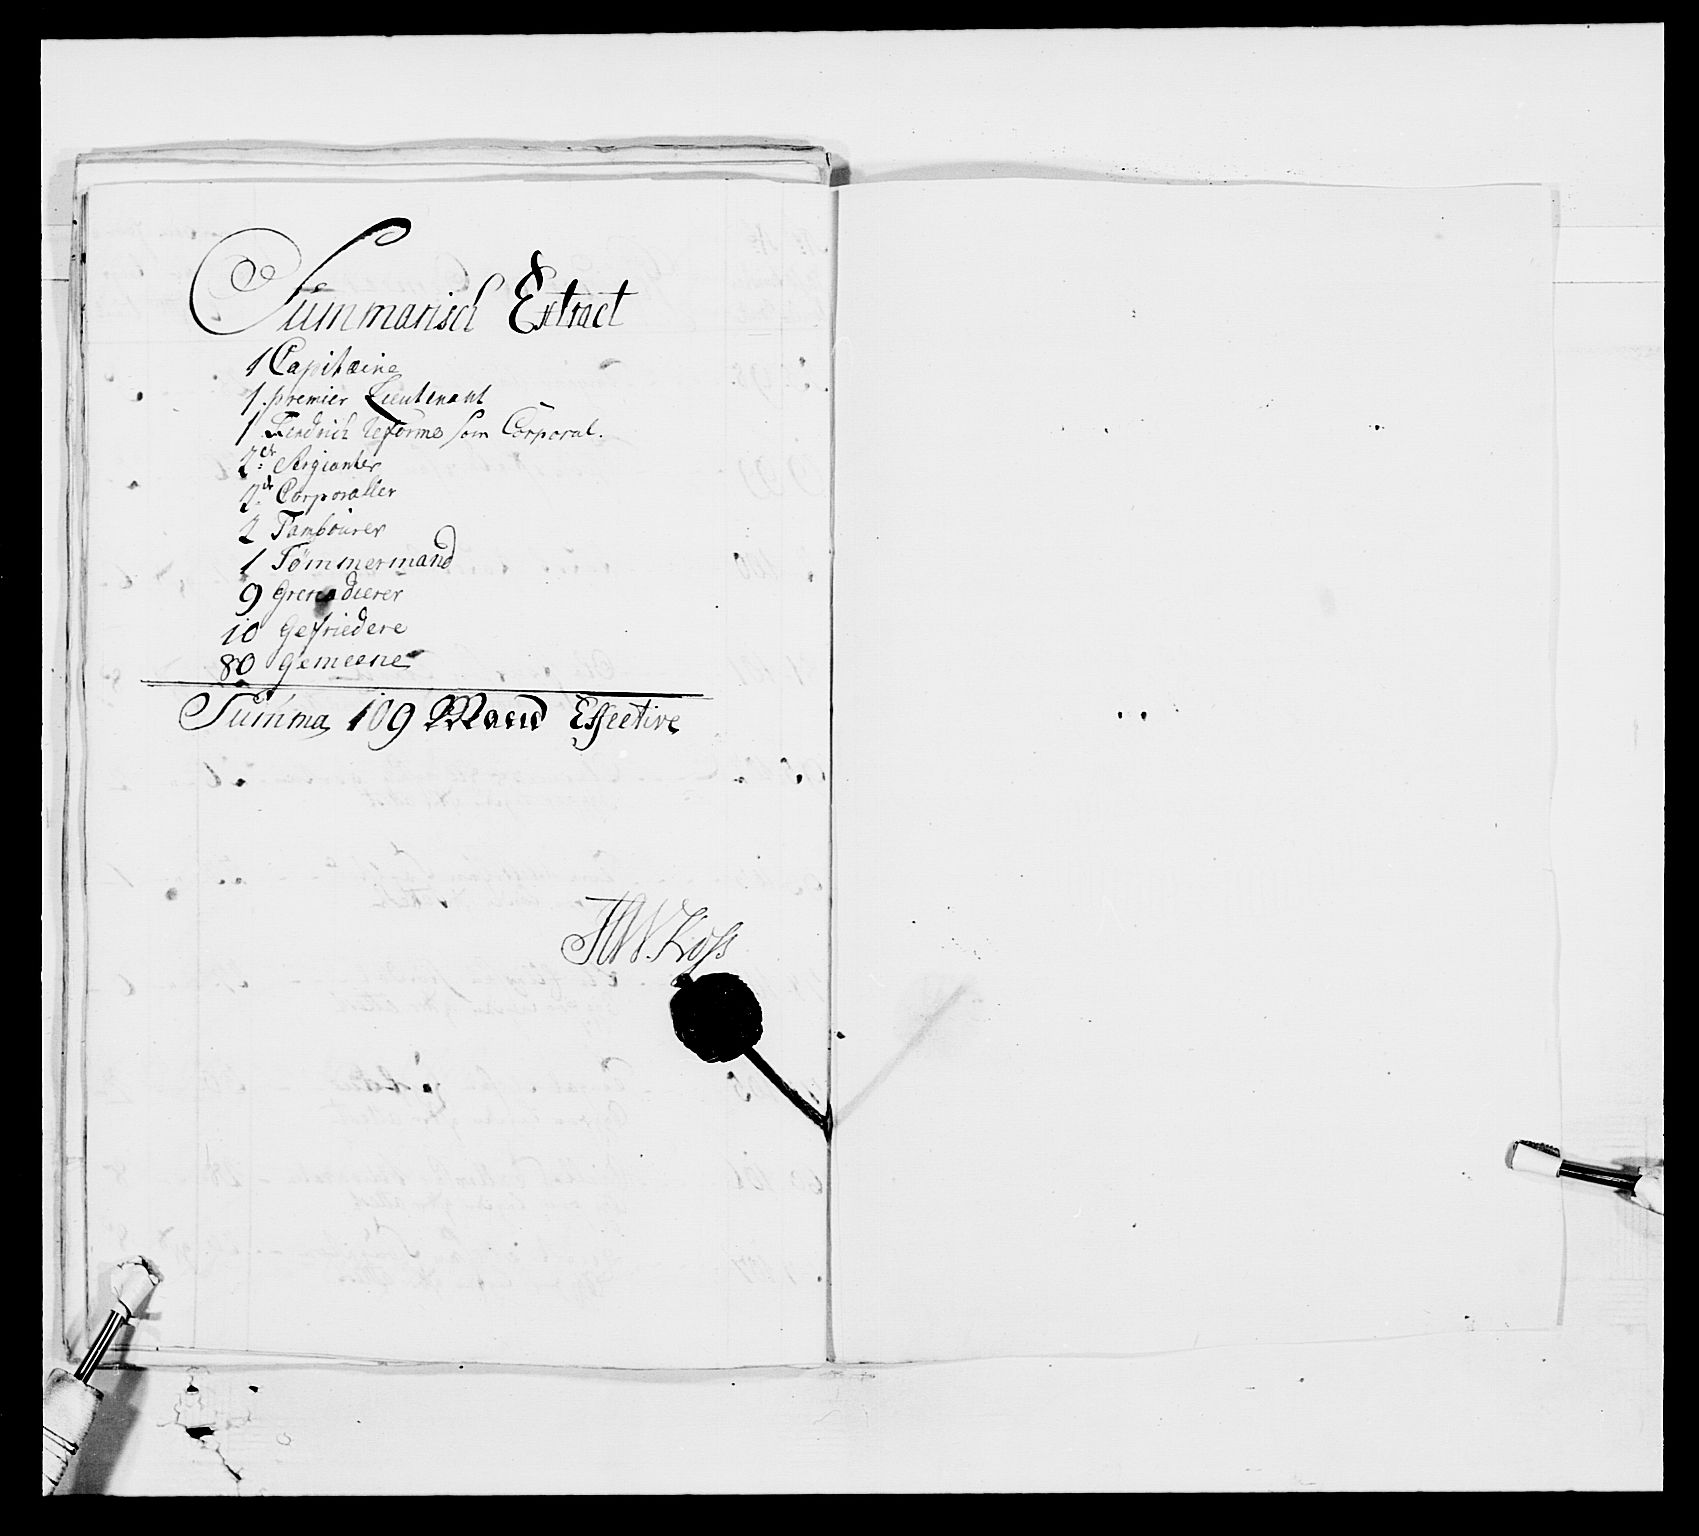 Summarisch Extract
1 Capitaine
1 premier Lieutenant
1 Fendrich Reforme som Corporal.
2de Sergianter
2de Corporaller
2 Tambourer
1 Tømmermand
9 Grenadierer
10 Gefriedere
80 Gemeene
Summa 109 Mand Effective
Koss